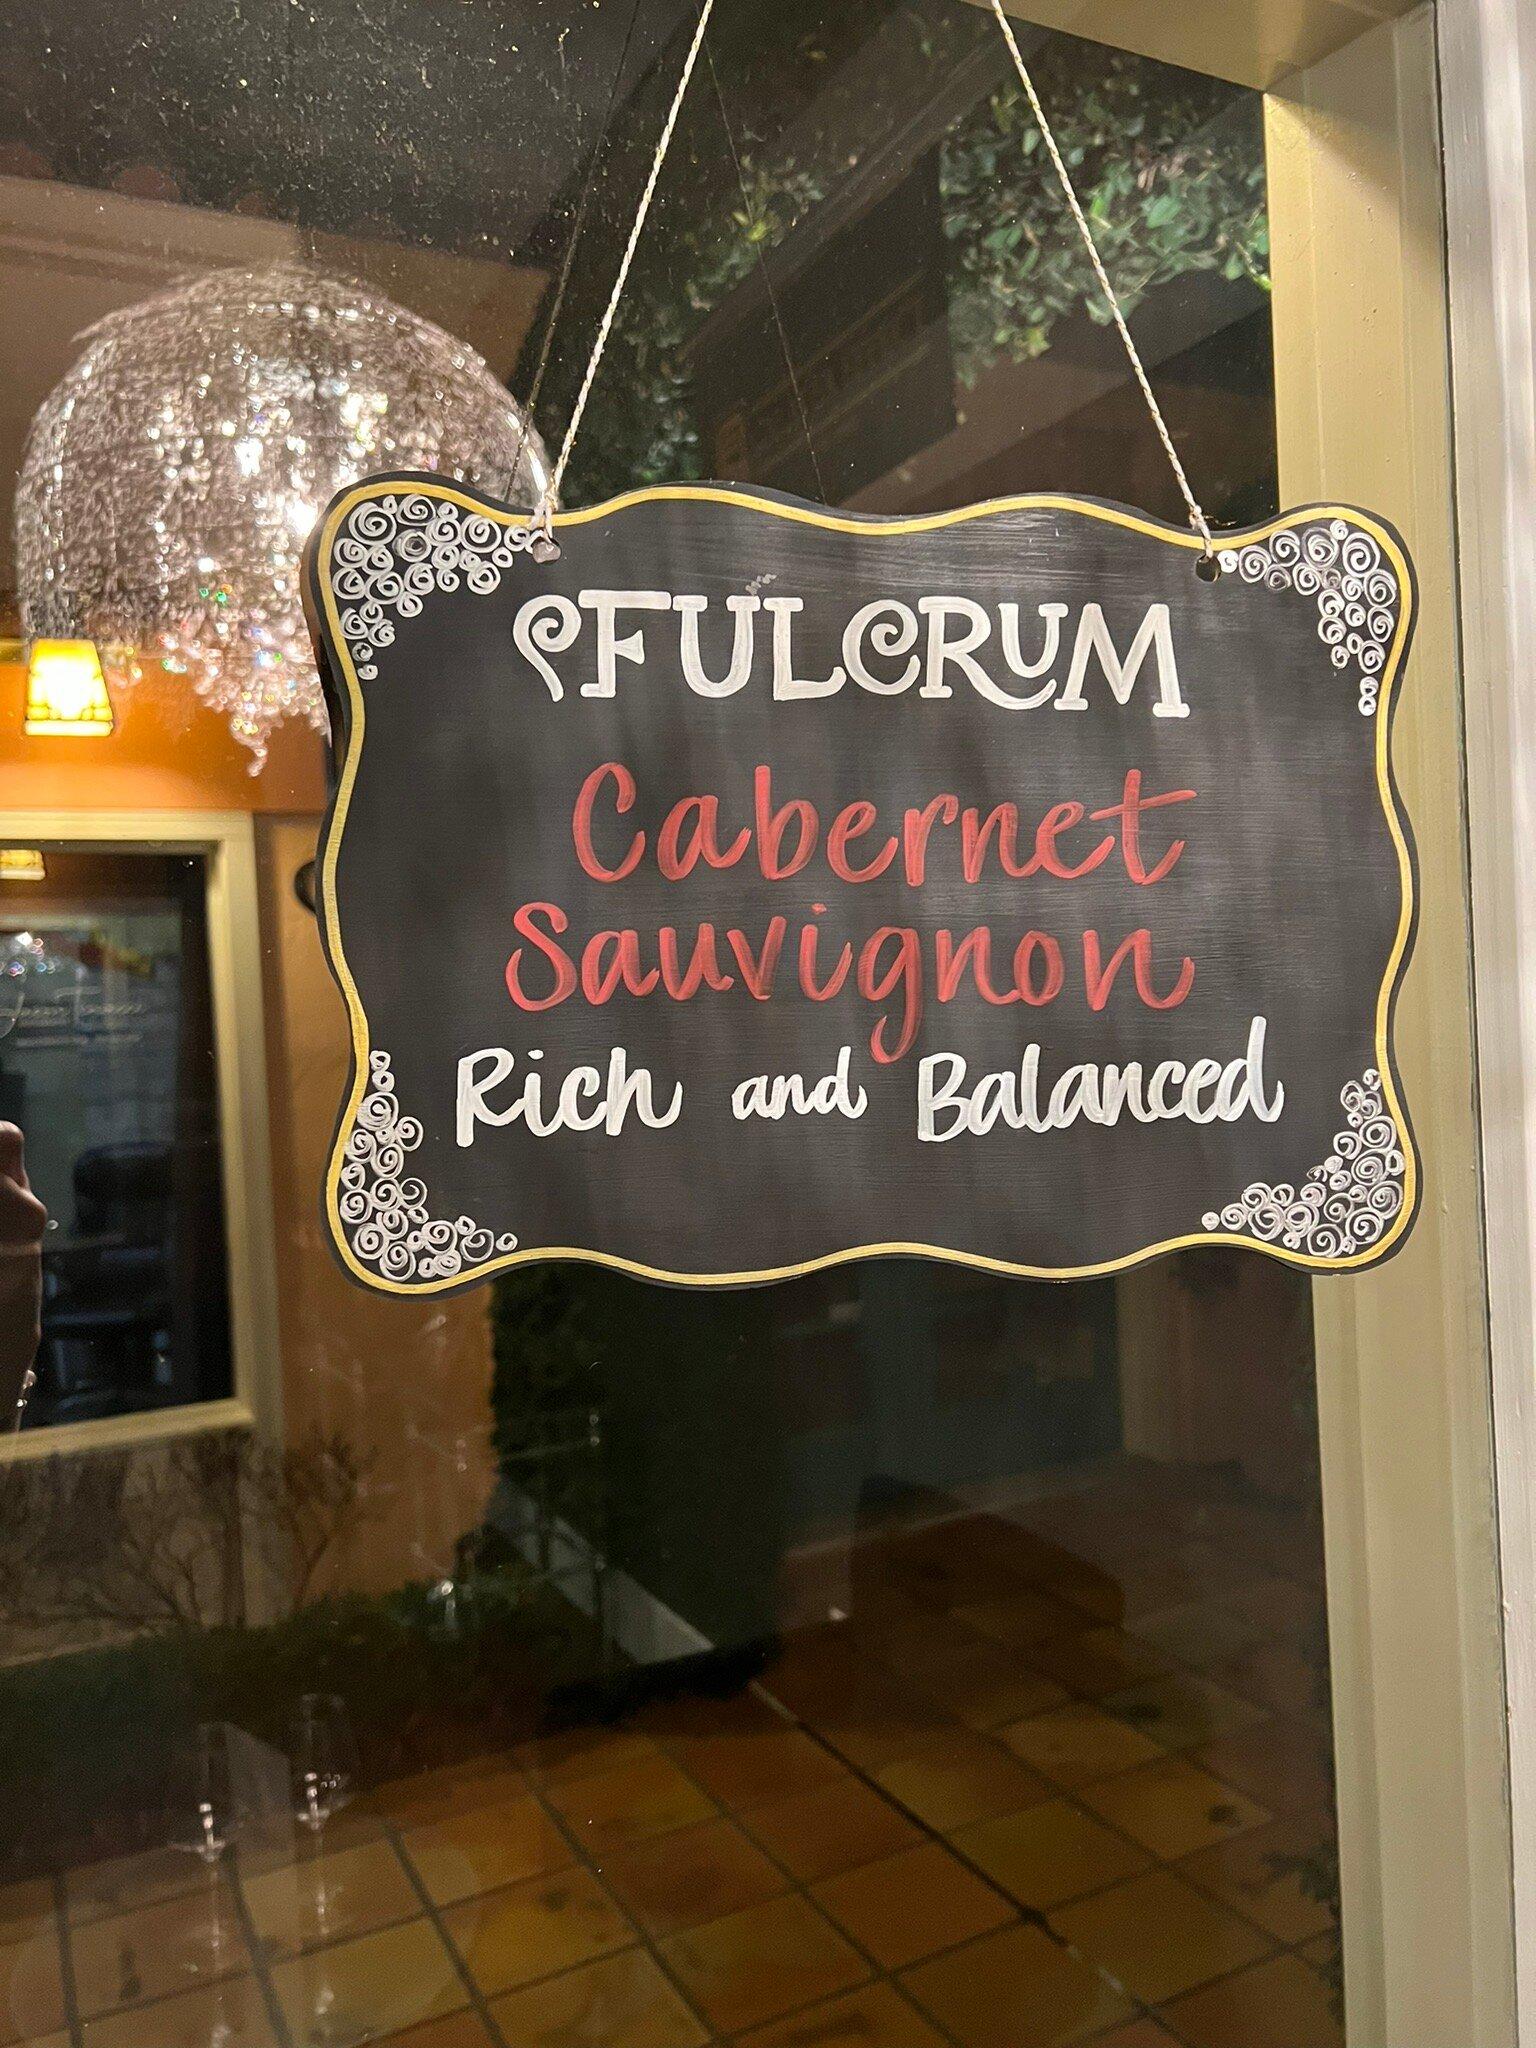 FULCRUM
Cabernet
Sauvignon
Rich and Balanced